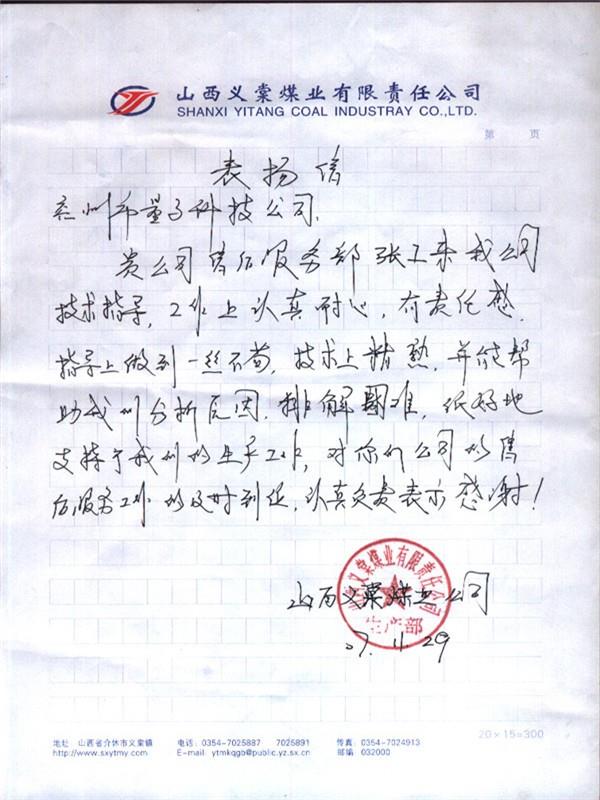 山西义棠煤业有限责任公司
SHANXI YITANG COAL INDUSTRAY CO.,LTD.
第 页
表扬信
兰州市量子科技公司.
贵公司售后服务部张工来我公司
技术指导，工作上认真耐心，有责任感.
指导上做到一丝不苟，技术上精熟，并能帮
助我们分析原因，排解困难，很好地
支持了我们的生产工作，对你们公司的售
后服务工作的及时到位，认真负责表示感谢！
山西义棠煤业有限责任公司
生产部
山西义棠煤业公司
07.11.29
20×15=300
地址 山西省介休市义棠镇 电话：0354-7025887 7025891 传真：0354-7024913
http://www.sxytmy.com E-mail ytmkqgb@public.yz.sx.cn 邮编 032000